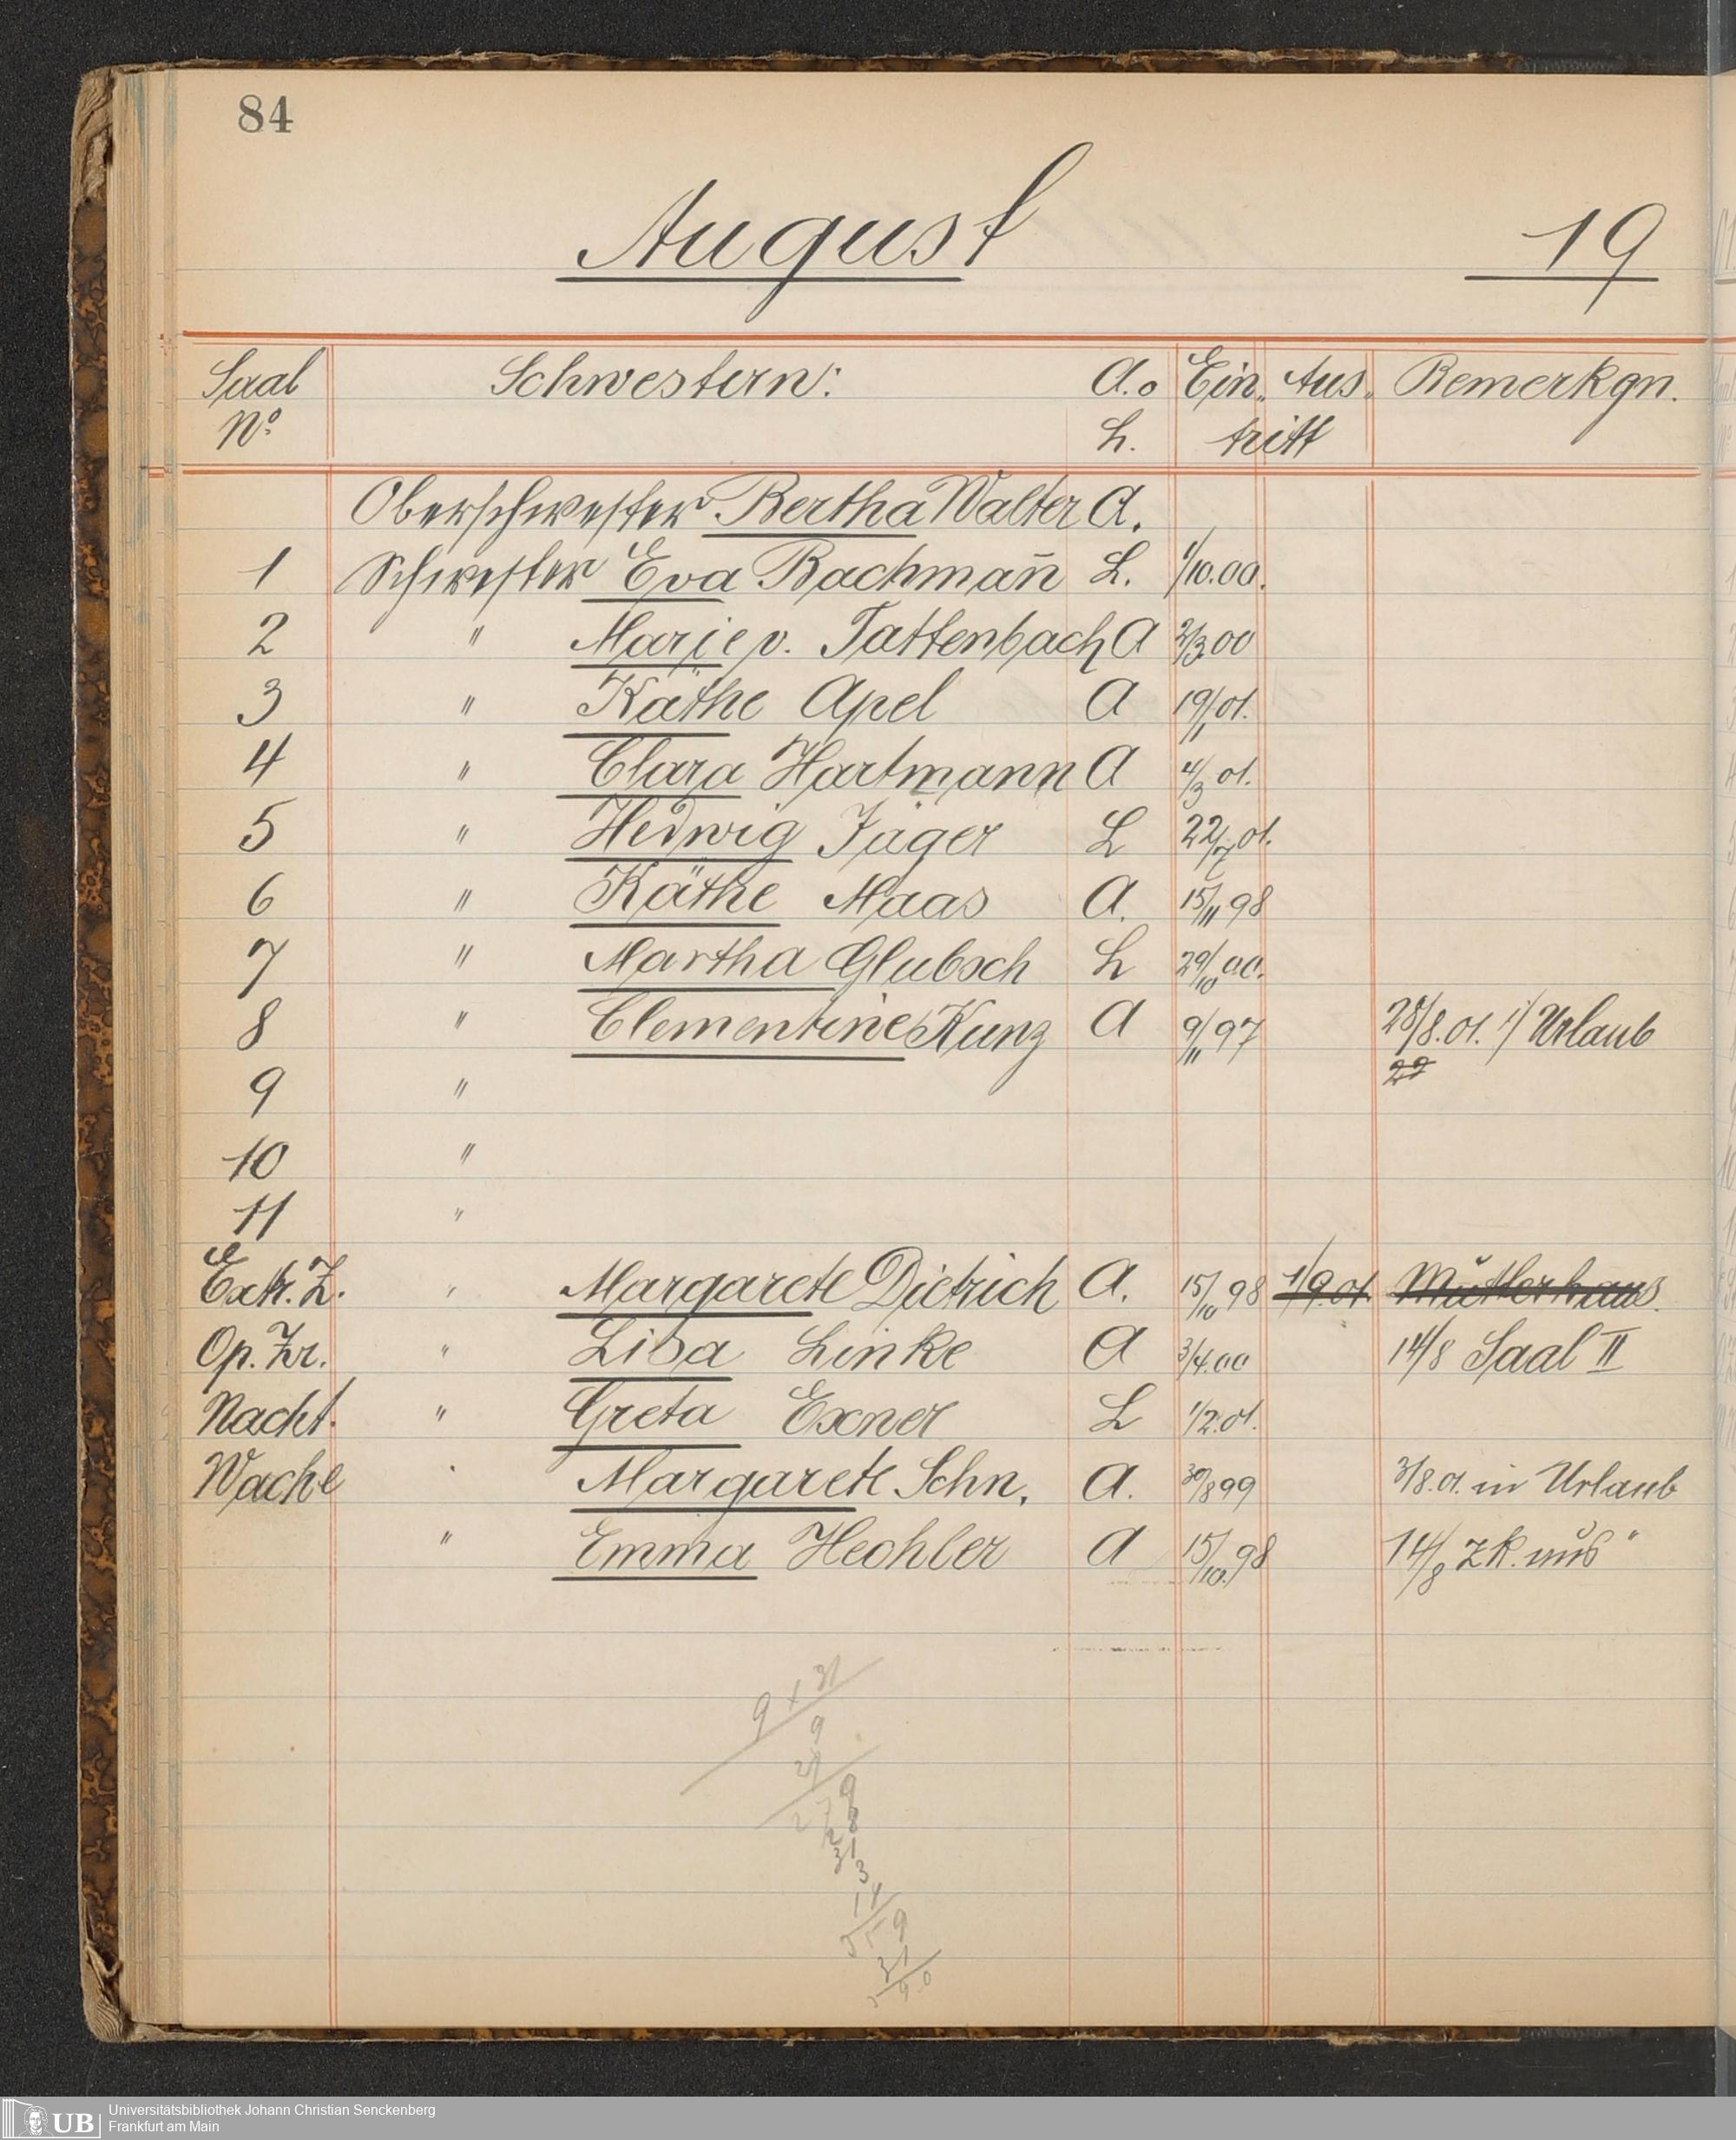 84
August 19
Saal Schwestern: A. o Ein„ Aus„ Bemerkgn.
No. L. tritt
Oberschwester Bertha Walter A.
1 Schwester Eva Bachman̄ L. 1/10.00.
2 " Marie v. Tattenbach A 2/3.00
3 " Käthe Apel A 19/1 01.
4 " Clara Hartmann A 4/3 01.
5 " Hedwig Jäger L 22/7 01.
6 " Käthe Maas A. 15/11 98
7 " Martha Glubsch L 29/10 00.
8 " Clementine Kunz A 9/11 97 28/8.01. i/ Urlaub
22
9 "
10 "
11 "
Extr. Z. " Margarete Dietrich A. 15/10 98 1/9.01. Mutterhaus.
Op. Zr. " Lisa Linke A 3/4.00 14/8 Saal II
Nacht. " Greta Exner L 1/2.01.
Wache " Margarete Schn. A. 30/8 99 3/8.01. in Urlaub
" Emma Hechler A 15/10. 98 14/8 zk. aus "
9 x 31
9
31
9
278
31
3
14
31
UB Universitätsbibliothek Johann Christian Senckenberg
Frankfurt am Main